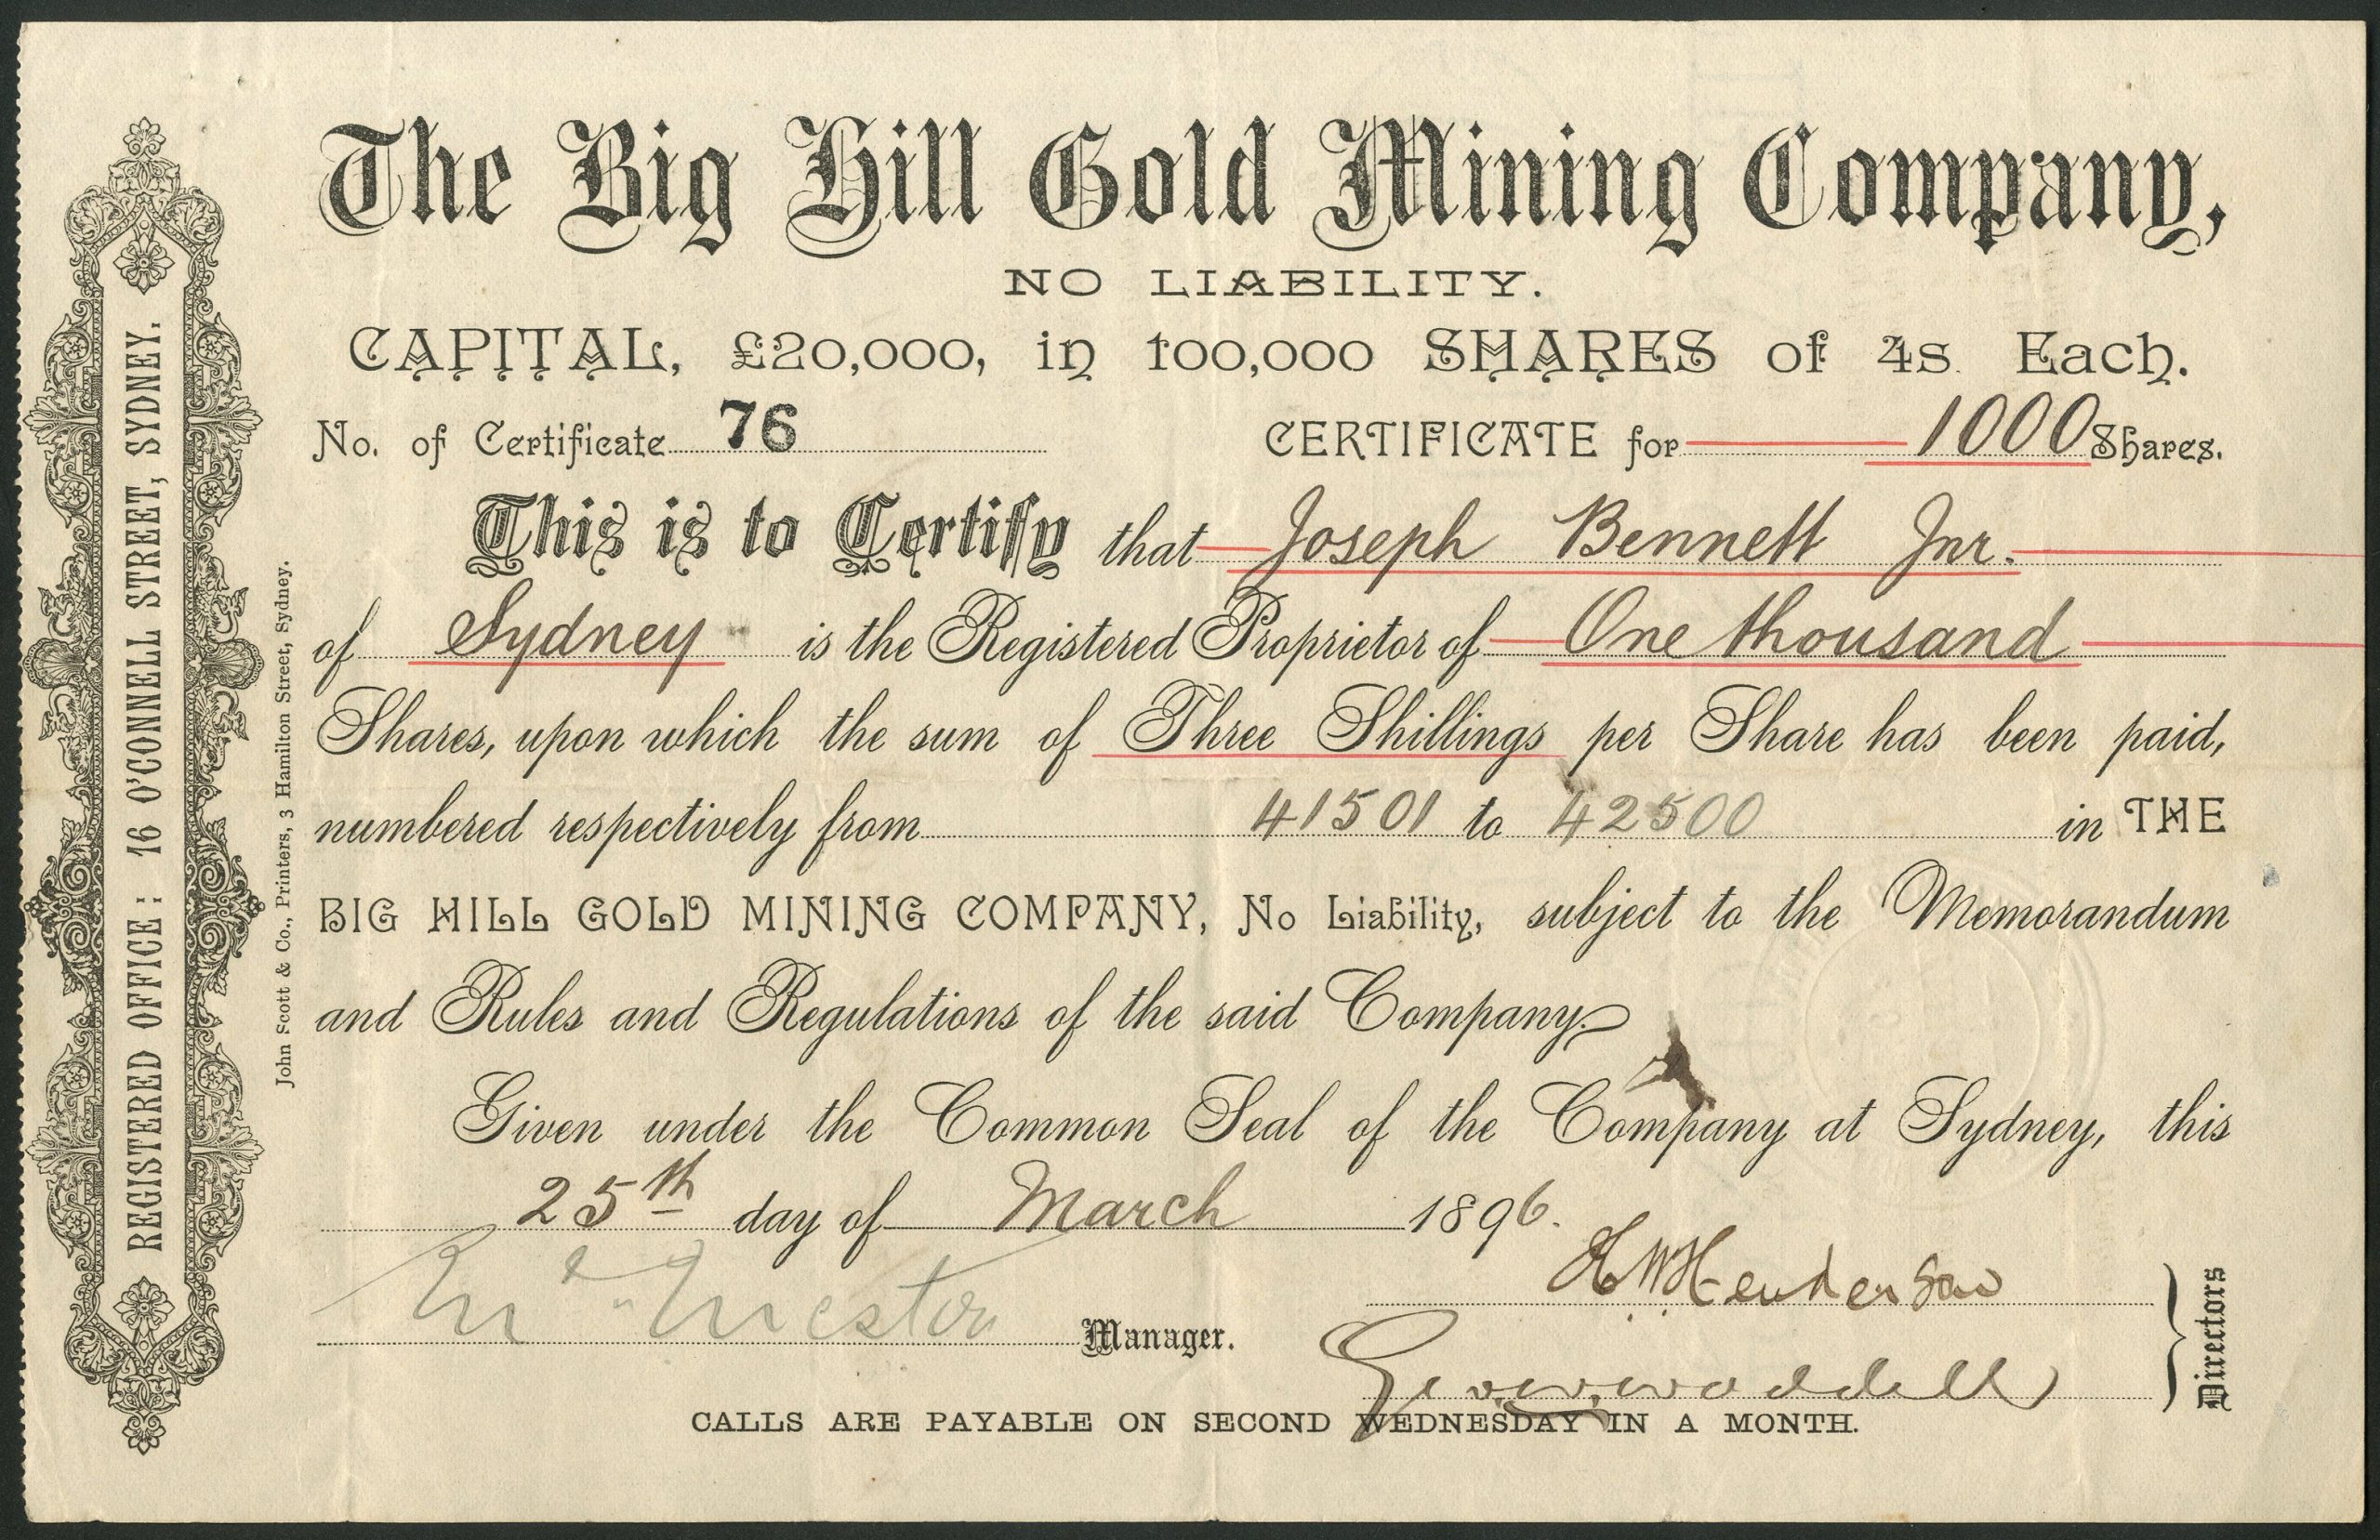 The Big Hill Gold Mining Company,
NO LIABILITY.
CAPITAL, £20,000, in 100,000 SHARES of 4s. Each.
No. of Certificate 76 CERTIFICATE for 1000 Shares.
This is to Certify that Joseph Bennett Jnr.
of Sydney is the Registered Proprietor of One thousand
Shares, upon which the sum of Three Shillings per Share has been paid,
numbered respectively from 41501 to 42500 in THE
BIG HILL GOLD MINING COMPANY, No Liability, subject to the Memorandum
and Rules and Regulations of the said Company.
Given under the Common Seal of the Company at Sydney, this
25th day of March 1896.
Manager.
Henderson
Directors
CALLS ARE PAYABLE ON SECOND WEDNESDAY IN A MONTH.
REGISTERED OFFICE: 16 O'CONNELL STREET, SYDNEY.
John Scott & Co., Printers, 3 Hamilton Street, Sydney.